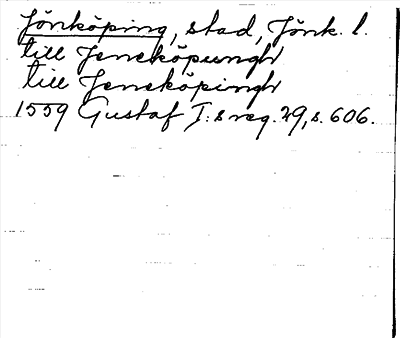 Jönköping, stad, Jönk. l.
till Jeneköpungh
till Jeneköpingh
1559 Gustaf I:s reg. 29, s. 606.